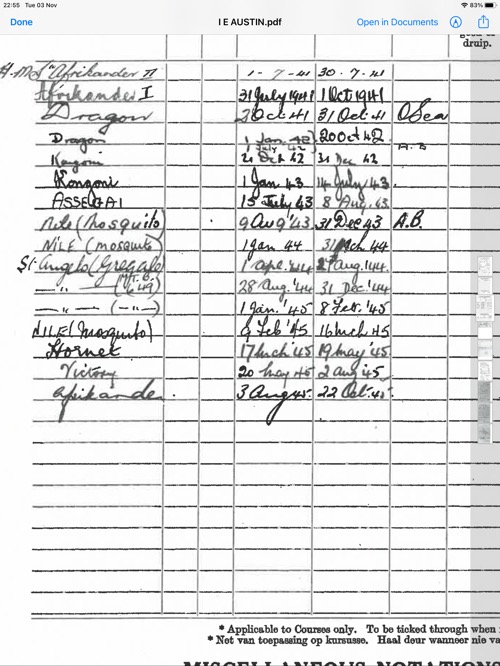 22:55 Tue 03 Nov 83%
Done I E AUSTIN.pdf Open in Documents
druip.
"Afrikander II 1 - 7 - 41 30 · 7 · 41
Afrikander I 31 July 1941 1 Oct 1941
Dragon 2 Oct · 41 31 Oct · 41 OSea
Dragon 1 Jan 42 20 Oct 42
1 July 42
Kongoni 21 Oct 42 31 Dec 42
Kongoni 1 Jan 43 14 July 43
ASSEGAI 15 July 43 8 Aug. 43
Nile (Mosquito) 9 Aug '43 31 Dec 43 A.B.
NILE (mosquito) 1 Jan 44 31 Mch 44
St. Angelo (Gregale) 1 Apl. '44 27 Aug. '44
—"— (M.T.B. 649) 28 Aug. '44 31 Dec. '44
—"— (—"—) 1 Jan. '45 8 Feb. '45
NILE (Mosquito) 9 Feb '45 16 Mch 45
Hornet 17 Mch '45 19 May '45
Victory 20 May 45 2 Aug '45
Afrikander 3 Aug 45 22 Oct 45
* Applicable to Courses only. To be ticked through when
* Not van toepassing op kursusse. Haal deur wanneer nie
MISCELLANEOUS NOTATIONS